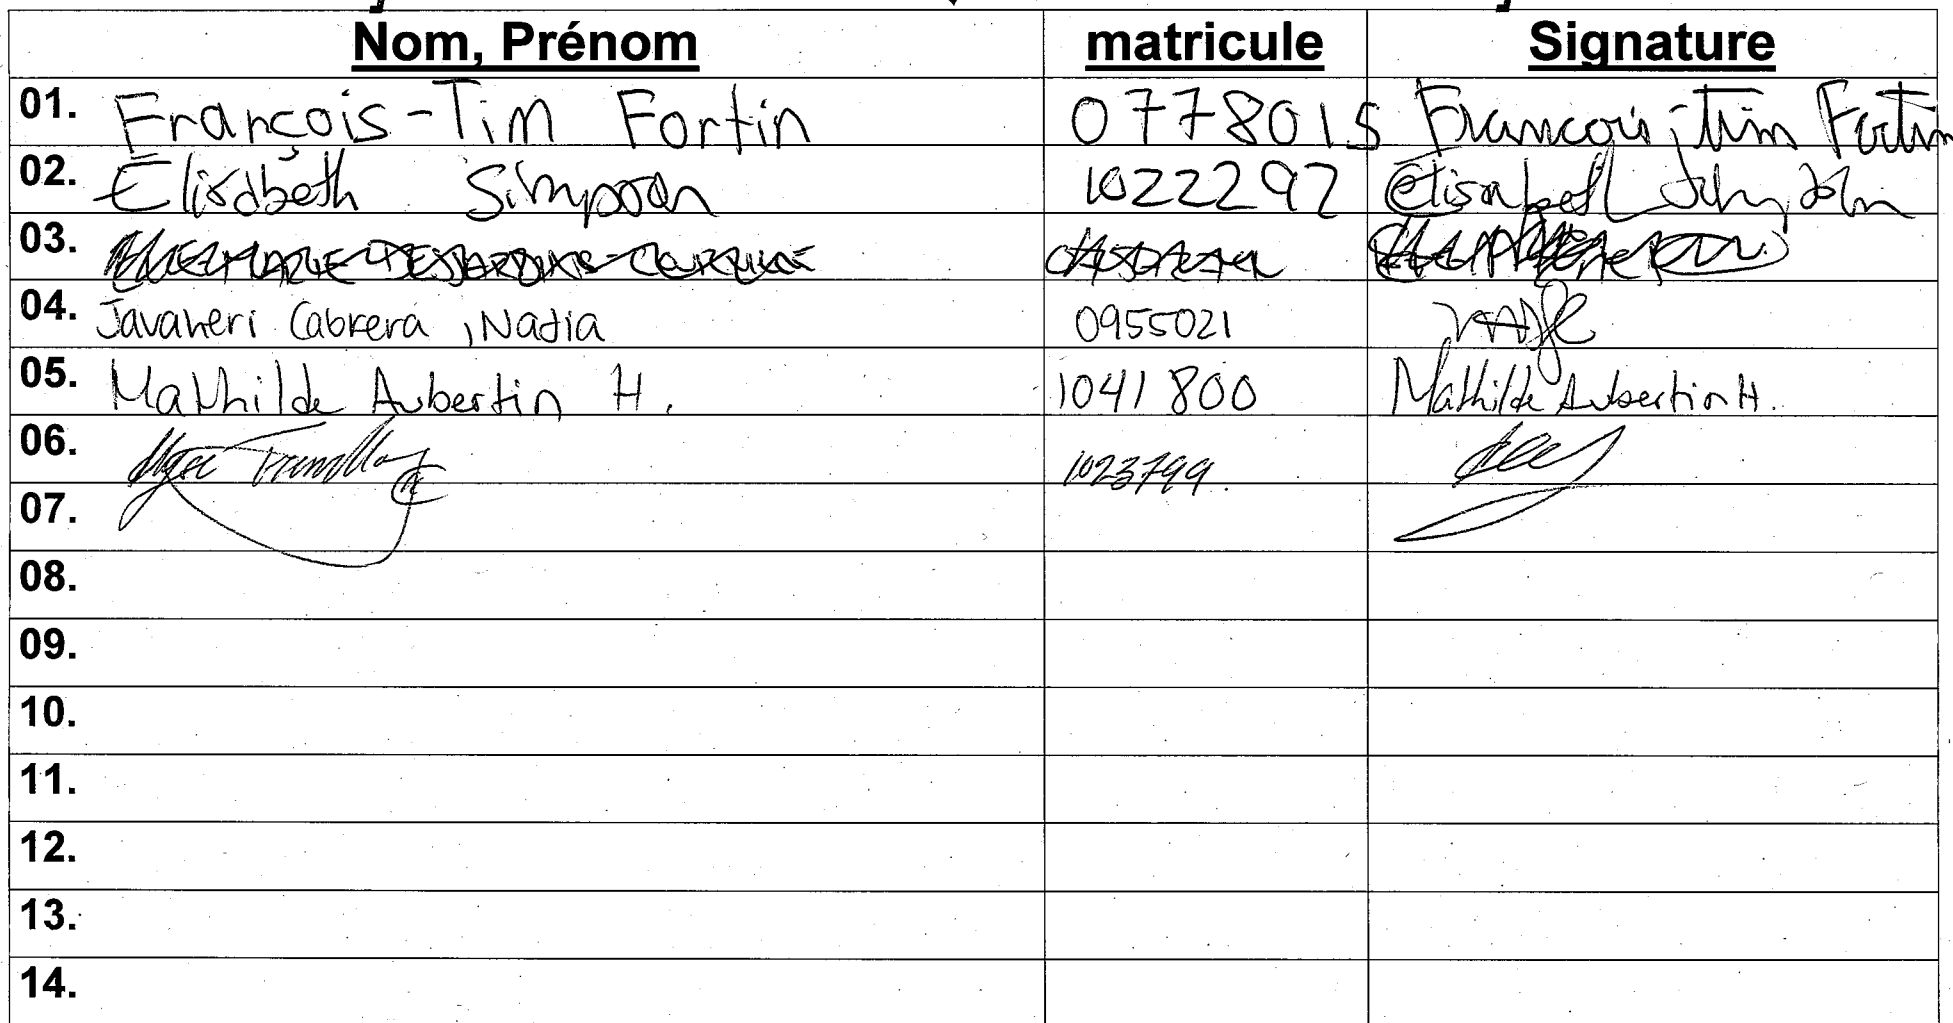 Nom, Prénom matricule Signature
01. François-Tim Fortin 0778015 Francois-Tim Fortin
02. Elisabeth Simpson 1022292 Elisabeth
03.
04. Javaheri Cabrera, Nadia 0955021
05. Mathilde Aubertin H. 1041800 Mathilde Aubertin H.
06. 1023799.
07.
08.
09.
10.
11.
12.
13.
14.